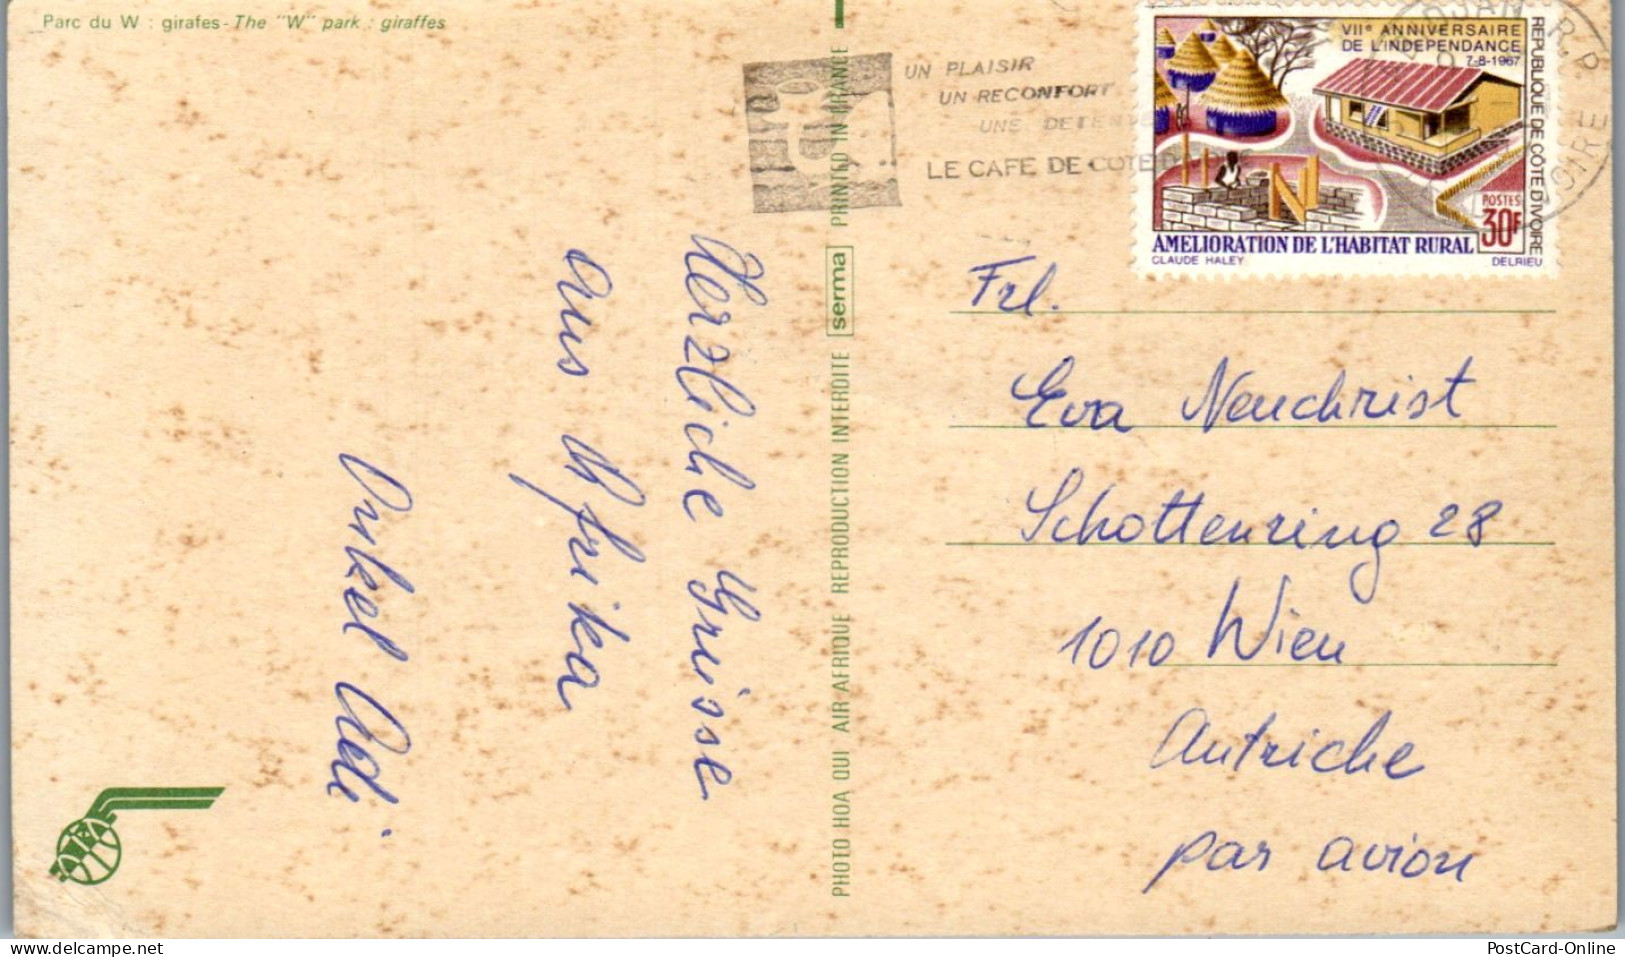 Parc du W : girafes - The "W" park : giraffes
UN PLAISIR
UN RECONFORT
UNE DETENTE
LE CAFE DE COTE D'IVOIRE
VIIe ANNIVERSAIRE
DE L'INDEPENDANCE
7-8-1967
REPUBLIQUE DE CÔTE D'IVOIRE
POSTES
30F
AMELIORATION DE L'HABITAT RURAL
CLAUDE HALEY
DELRIEU
Herzliche Grüsse
aus Afrika
Onkel Adi
PHOTO HOA QUI AIR AFRIQUE REPRODUCTION INTERDITE serma PRINTED IN FRANCE
Frl.
Eva Neuchrist
Schottenring 28
1010 Wien
Autriche
par avion
www.delcampe.net
PostCard-Online